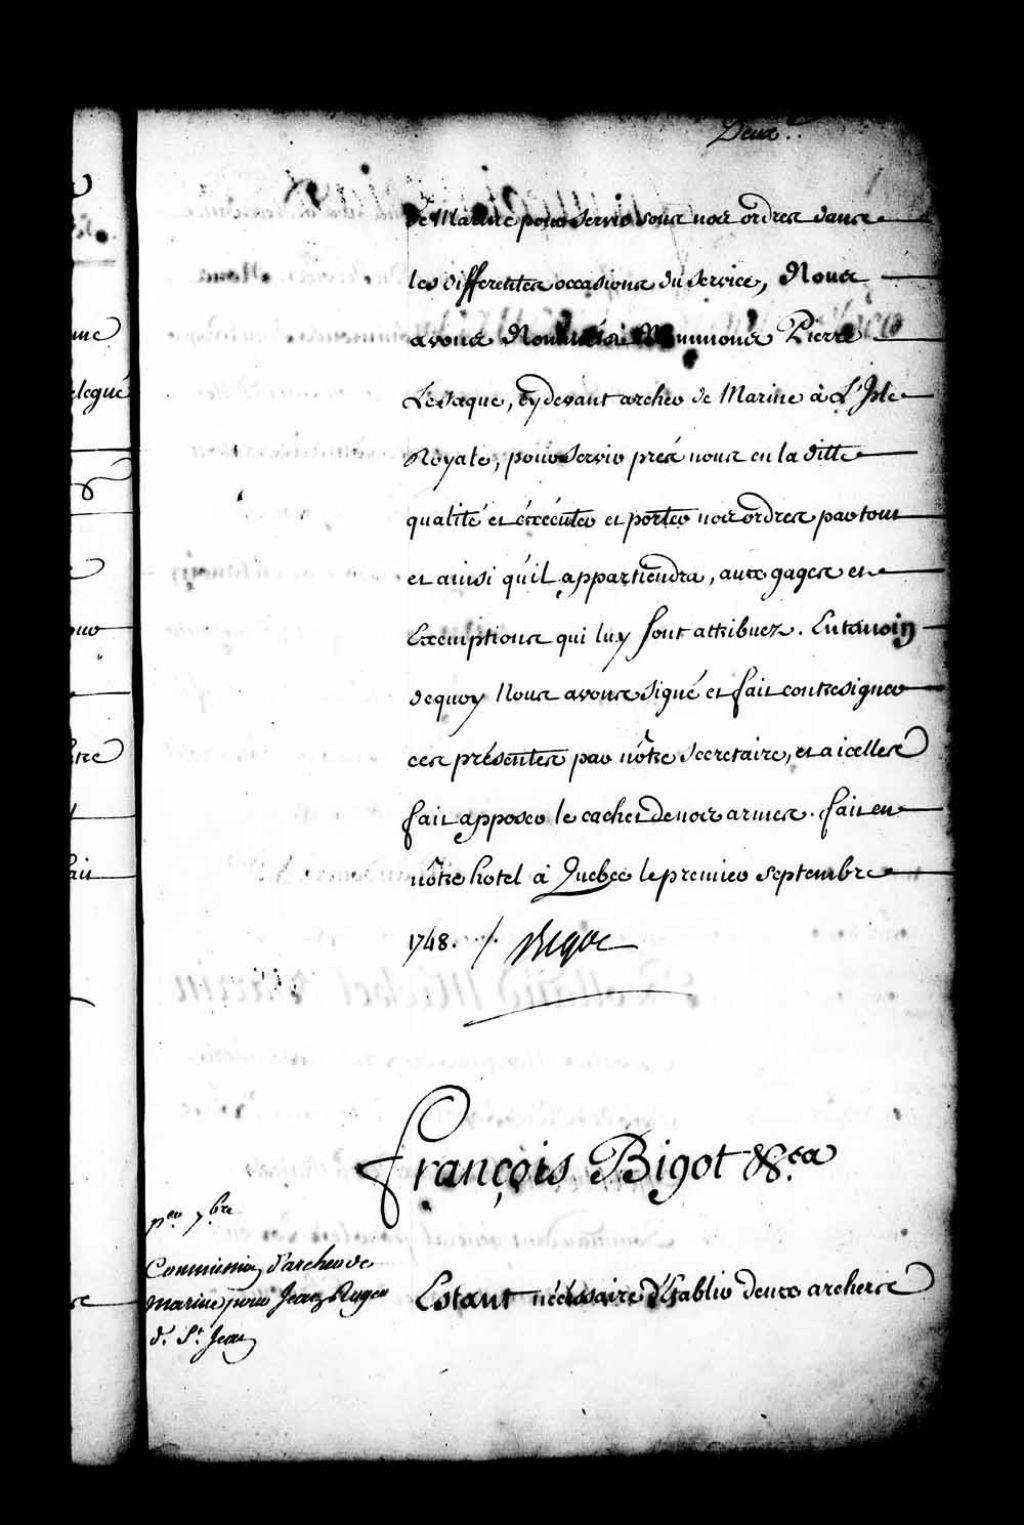 Deux.e
de Marine pour servir sous nos ordres dans
les differentes occasions du service, Nous
avons Nommé et Nommons Pierre
Levaque, cydevant archer de Marine à L'Isle
Royale, pour servir prés nous en la ditte
qualité et éxécuter et porter nos ordres par tout
et ainsi qu'il appartiendra, aux gages et
Exemptions qui luy sont attribuez. Entemoin
dequoy Nous avons signé et fait contresigner
ces présentes par nôtre secretaire, et a icelles
fait apposer le cachet de nos armes. fait en
nôtre hotel à Quebec le premier septembre
1748. ./. Bigot
François Bigot &c.ea
p.er 7.bre
Commission d'archer de
marine pour Jean Roger
d. St. Jean
Estant nécéssaire d'Etablir deux archers
ne
elegué
our
tre
fait